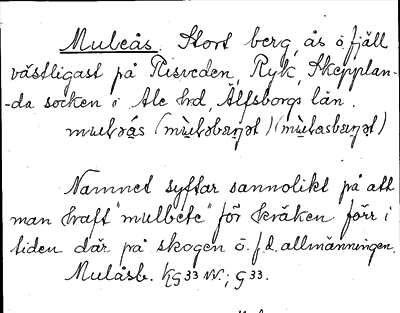 Muleås. Stort berg, ås ö fjäll
västligast på Risveden, Ryk, Skepplan-
-da socken i Ale hd, Älfsborgs län.
Namnet syftar sannolikt på att
man haft "mulbete" för kräken förr i
tiden där på skogen ö. f.d. allmänningen.
Mulåsb. KG33 NV.; G33.